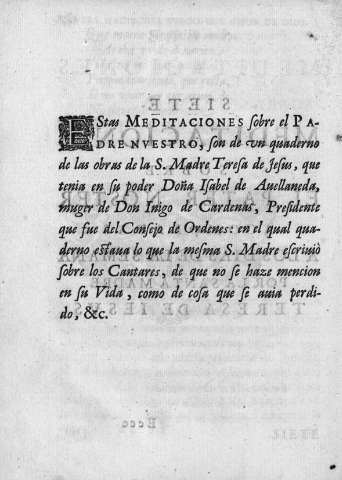 EStas MEDITACIONES sobre el PA-
DRE NVESTRO, son de vn quaderno
de las obras de la S. Madre Teresa de Jesus, que
tenia en su poder Doña Isabel de Auellaneda,
muger de Don Inigo de Cardenas, Presidente
que fue del Consejo de Ordenes: en el qual qua-
derno estaua lo que la mesma S. Madre escriuiò
sobre los Cantares, de que no se haze mencion
en su Vida, como de cosa que se auia perdi-
do, &c.